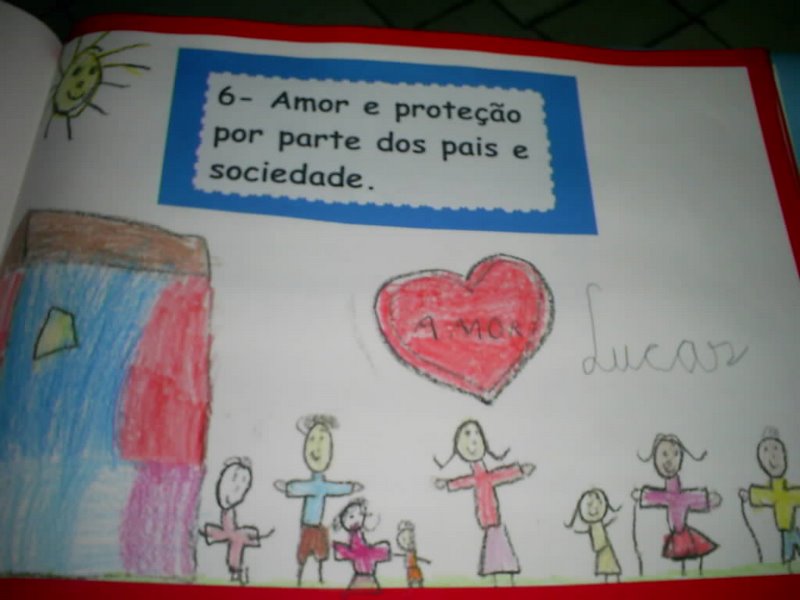 6- Amor e proteção
por parte dos pais e
sociedade.
AMOR
Lucas